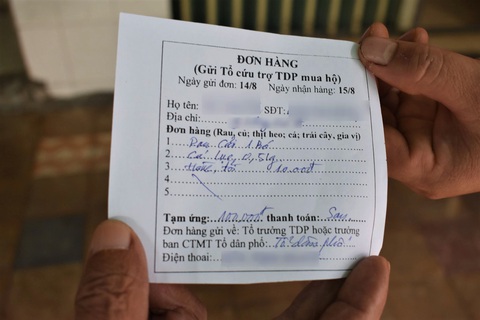 ĐƠN HÀNG
(Gửi Tổ cứu trợ TDP mua hộ)
Ngày gửi đơn: 14/8 Ngày nhận hàng: 15/8
Họ tên: SDT:
Địa chỉ:
Đơn hàng (Rau, củ; thịt heo; cá; trái cây, gia vị)
1. Rau cải 1 bó
2. Cá lục, 0,5kg
3. tỏi 10.000đ
4.
5.
Tạm ứng: 100.000đ thanh toán: Sau
Đơn hàng gửi về: Tổ trưởng TDP hoặc trưởng
ban CTMT Tổ dân phố: Tổ dân phố
Điện thoai: